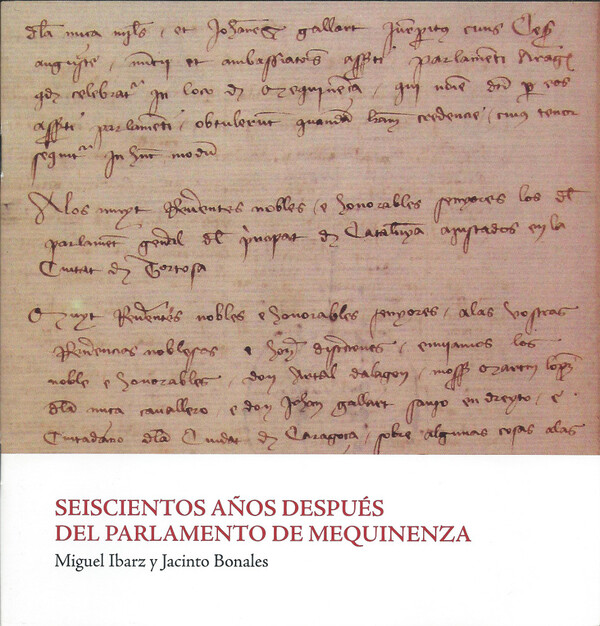 dla nuca mils, et Johanes gallart Jurepitus cuns Ces
auguste, nuncii et ambassiatores assiti parlamenti Aragon
qd celebratur in loco de Mequinença, qui noie dni p eos
assiti parlamenti, obtulerunt quandam lram credencie, cuius tenor
sequitur in hunc modum
Alos muyt Reverentes nobles, e honorables senyores los del
parlament general del principat de Catalunya ajustados en la
Ciutat de Tortosa
Muyt Reverentes nobles e honorables senyores, alas vostras
Reverencias noblesas e honorables discreciones, enviamos los
noble e honorables, don Artal dalagon, mossen Martin lopez
dla nuca cavallero e don Johan gallart savio en dreyto, e
Ciutadano dla Ciudat de Caragoça, sobre algunas cosas alas
SEISCIENTOS AÑOS DESPUÉS
DEL PARLAMENTO DE MEQUINENZA
Miguel Ibarz y Jacinto Bonales